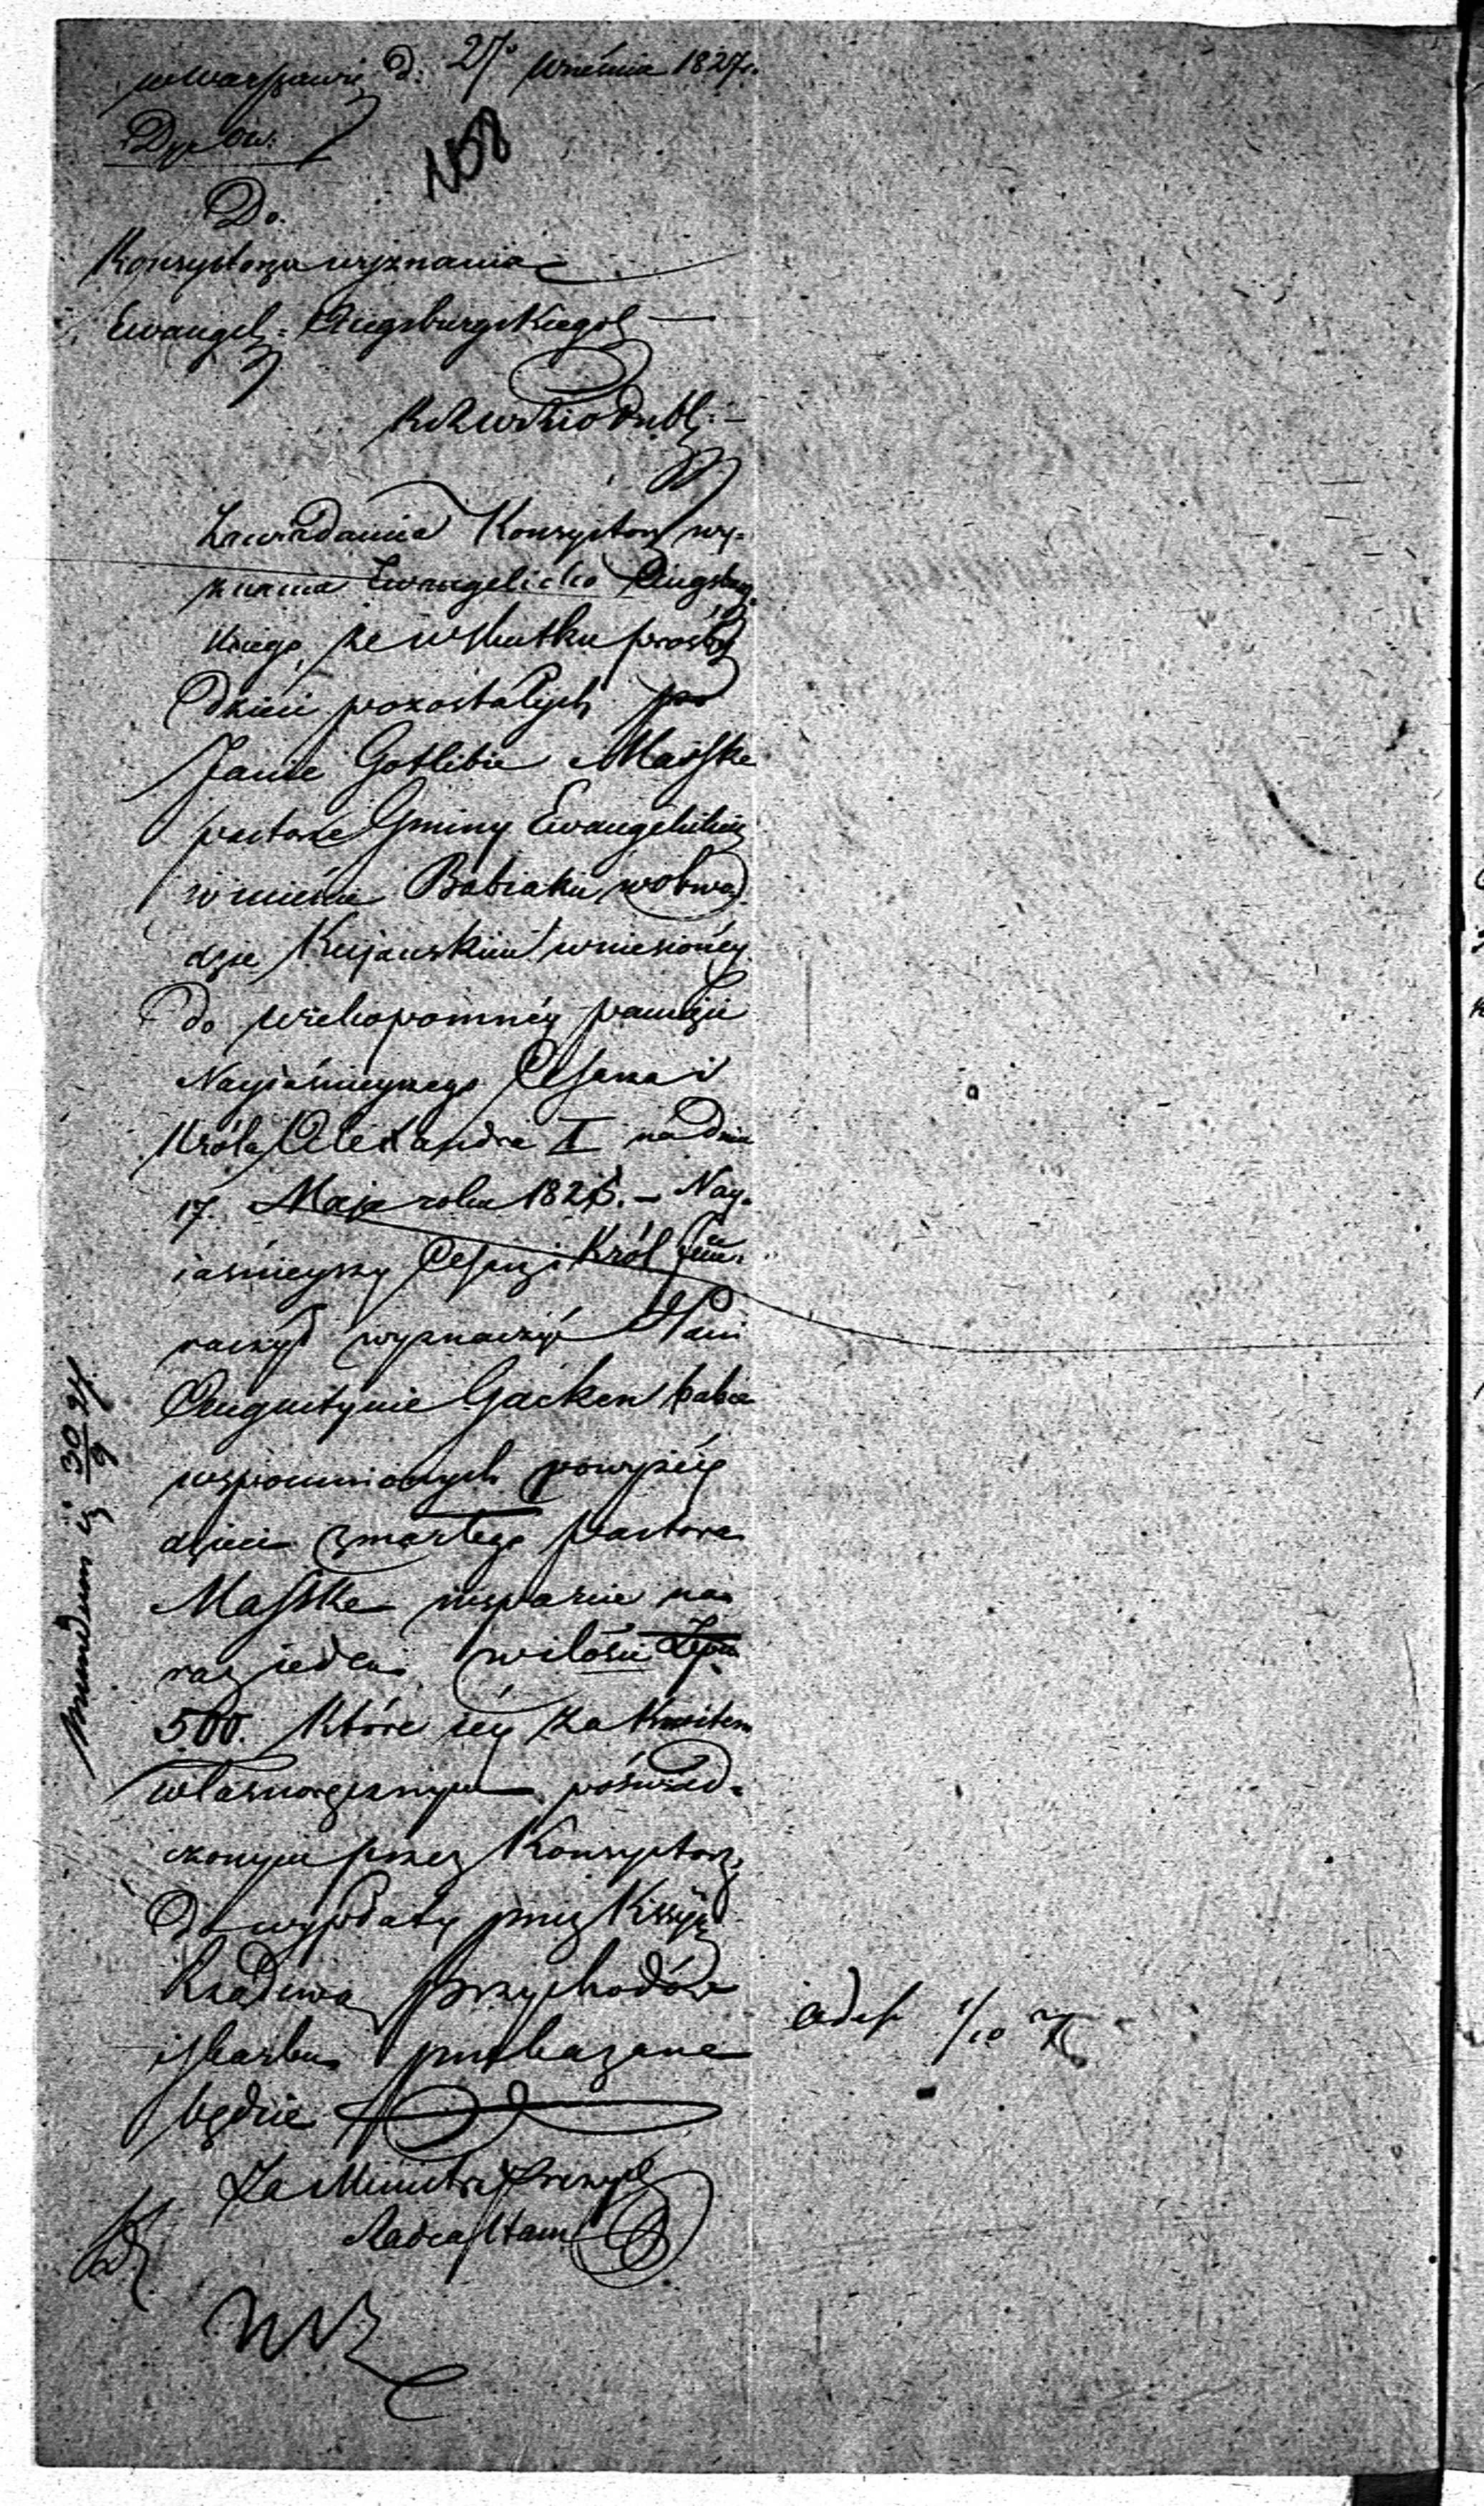 w Warszawie d. 27° Września 1827 r.
158
Do.
Konsystorza wyznania
Ewangel: Augsburgskiego
Zawiadamia Konsystorz wy=
znania Ewangelicko Augsburg=
skiego, że w skutku prośby
dzieci pozostałych po
Janie Gotlibie Maśske
pastorze Gminy Ewangelickiey
w mieście Babiaku w obwo=
dzie Kujawskim wniesionéy
do wiekopomnéy pamięci
Nayiaśnieyszego Cesarza i
Króla Alexandra I na dniu
17. Maja roku 1825. – Nay=
iaśnieyszy Cesarz i Król
raczył wyznaczyć Pani
Augustynie Gacken babce
wspomnionych powyżéy
dzieci zmarłego pastora
Maśske wsparcie na
raz jeden w ilości Złp.
500. które iéy za kwitem
własnoręcznym poświad=
czonym przez Konsystorz,
do wypłaty przez Kssyę
Rządową Przychodów
i Skarbu przekazane
będzie
Za Ministra Prezyd.
Radca Stanu
Mundum 30/9 27.
1/10